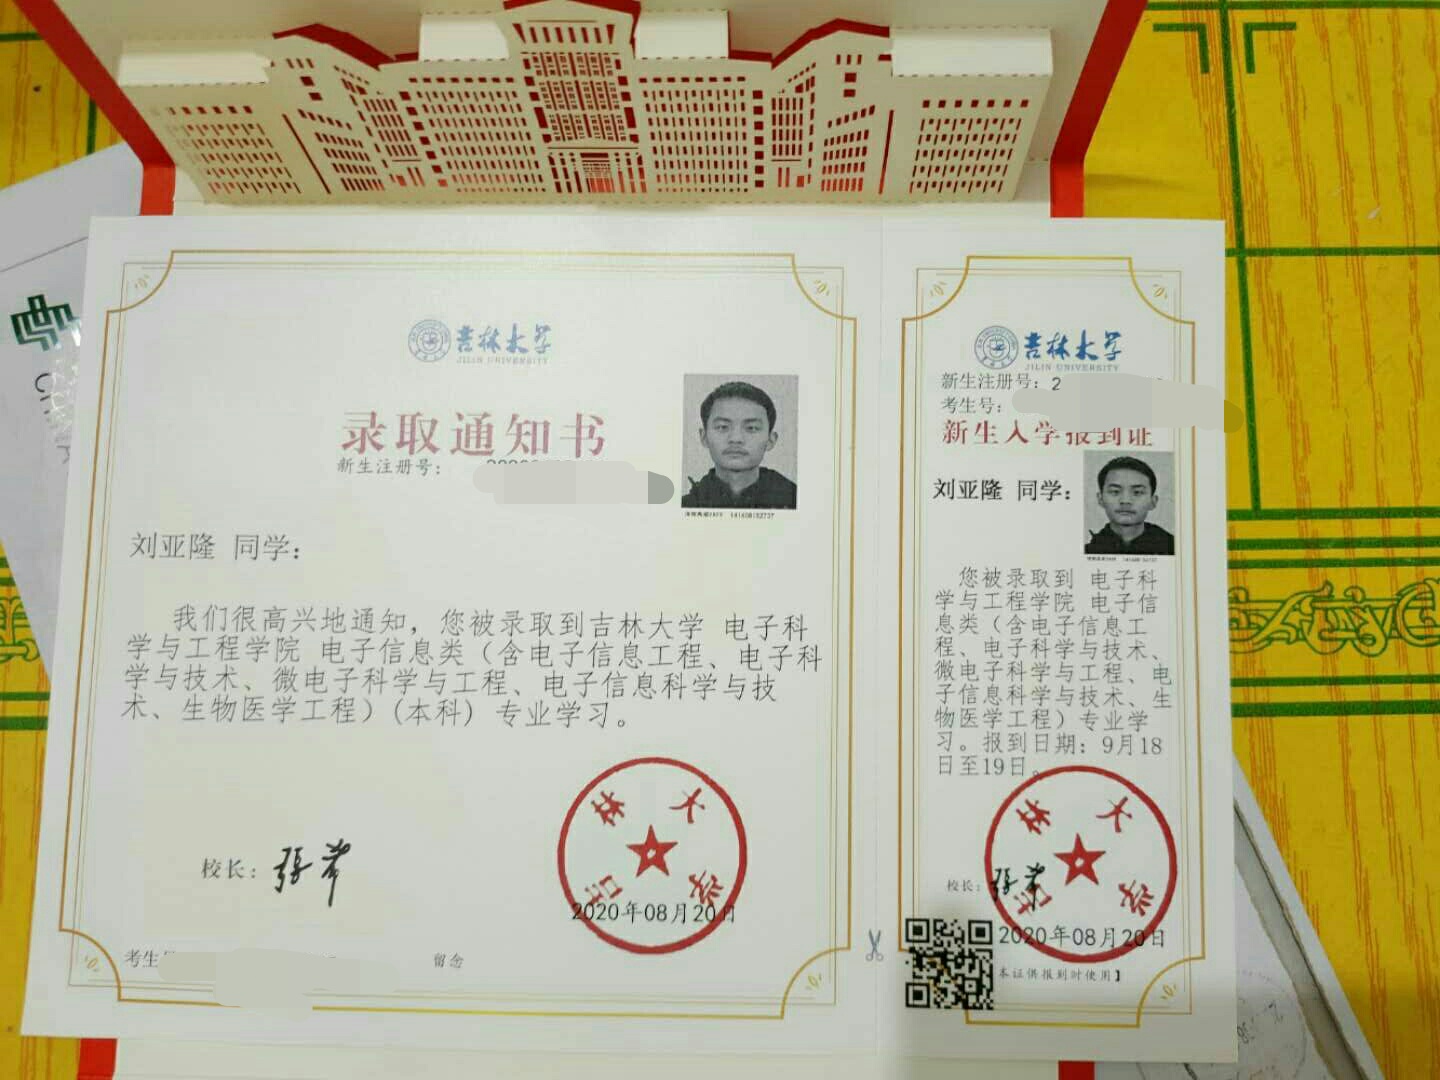 吉林大学
JILIN UNIVERSITY
录取通知书
新生注册号：
刘亚隆 同学：
我们很高兴地通知，您被录取到吉林大学 电子科
学与工程学院 电子信息类（含电子信息工程、电子科
学与技术、微电子科学与工程、电子信息科学与技
术、生物医学工程）(本科) 专业学习。
校长：张希
吉林大学
2020年08月20日
考生
留念
吉林大学
JILIN UNIVERSITY
新生注册号：2
考生号：
新生入学报到证
刘亚隆 同学：
您被录取到 电子科
学与工程学院 电子信
息类（含电子信息工
程、电子科学与技术、
微电子科学与工程、电
子信息科学与技术、生
物医学工程）专业学
习。报到日期：9月18
日至19日。
校长：张希
吉林大学
2020年08月20日
本证供报到时使用】